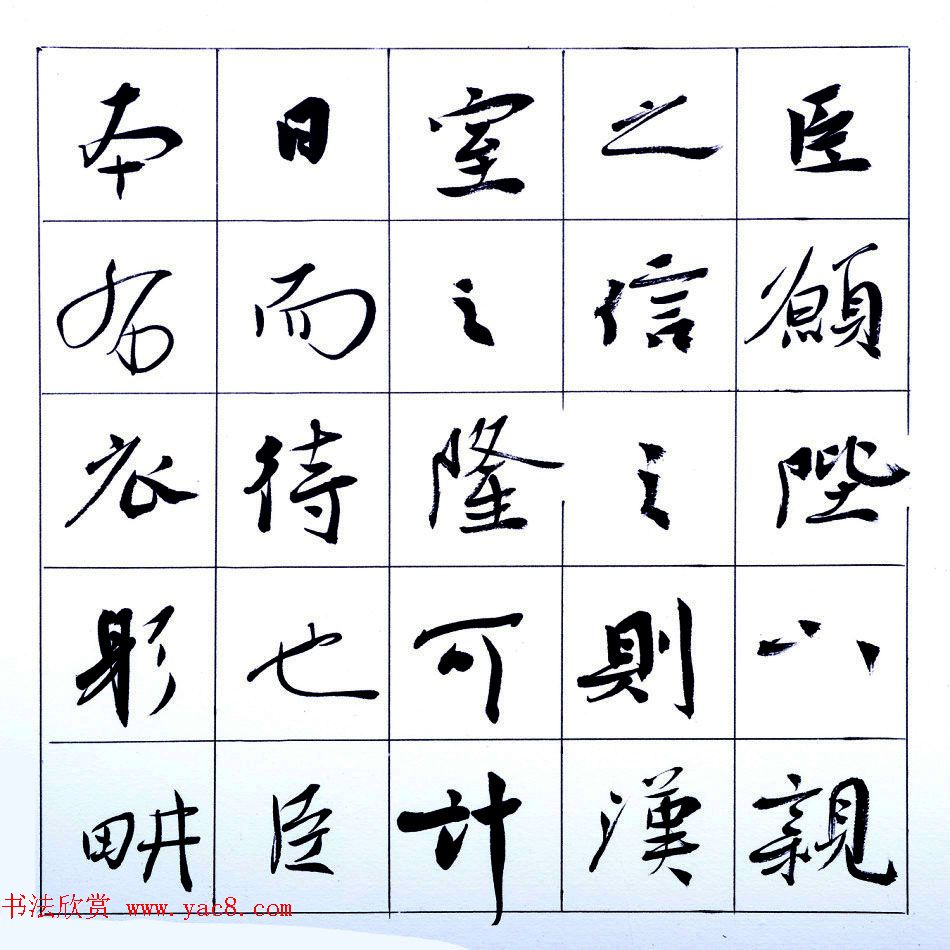 臣願陛下親
之信之則漢
室之隆可計
日而待也臣
本布衣躬畊
书法欣赏 www.yac8.com